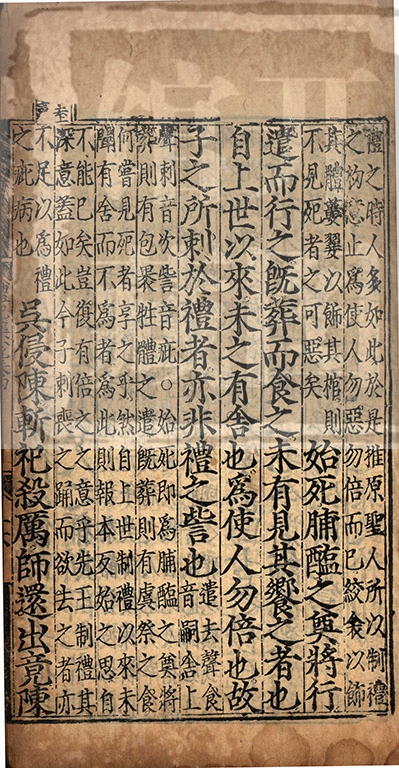 禮之時人多如此於是推原聖人所以制禮
之初意止爲使人勿惡勿倍而已絞衾以飾
其體蔞翣以飾其棺則
不見死者之可惡矣
始死脯醢之奠將行
遣而行之既葬而食之未有見其饗之者也
自上世以來未之有舍也爲使人勿倍也故
子之所刺於禮者亦非禮之訾也
遣去聲食
音嗣舍上
聲刺音次訾音疵○始死即爲脯醢之奠將
葬則有包裹牲體之遣既葬則有虞祭之食
何嘗見死者享之乎然自上世制禮以來未
聞有舍而不爲者爲此則報本反始之思自
不能已矣豈復有倍之之意乎先王制禮其
深意蓋如此今子刺喪之踊而欲去之者亦
不足以爲禮
之疵病也
吳侵陳斬祀殺厲師還出竟陳